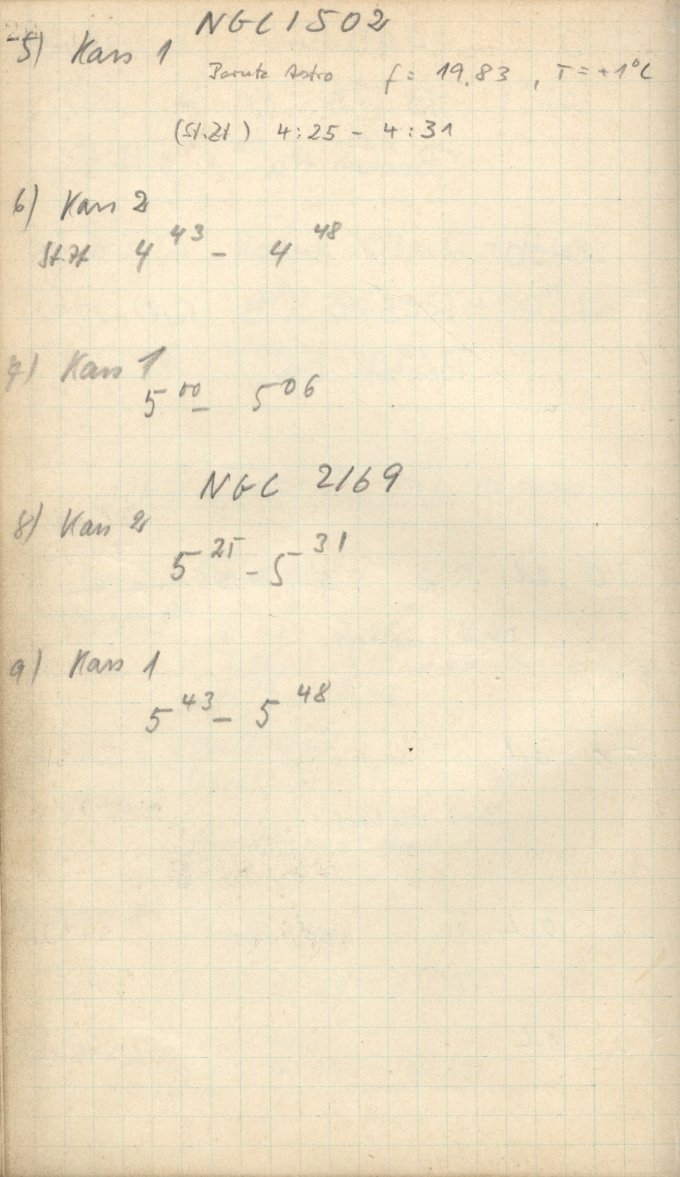 NGC 1502
5) Kass 1
Perutz Astro f = 19,83, T = +1°C
(St.Zt) 4:25 - 4:31
6) Kass 2
St.Zt 4 43 - 4 48
7) Kass 1
5 00 - 5 06
NGC 2169
8) Kass 2
5 25 - 5 31
9) Kass 1
5 43 - 5 48